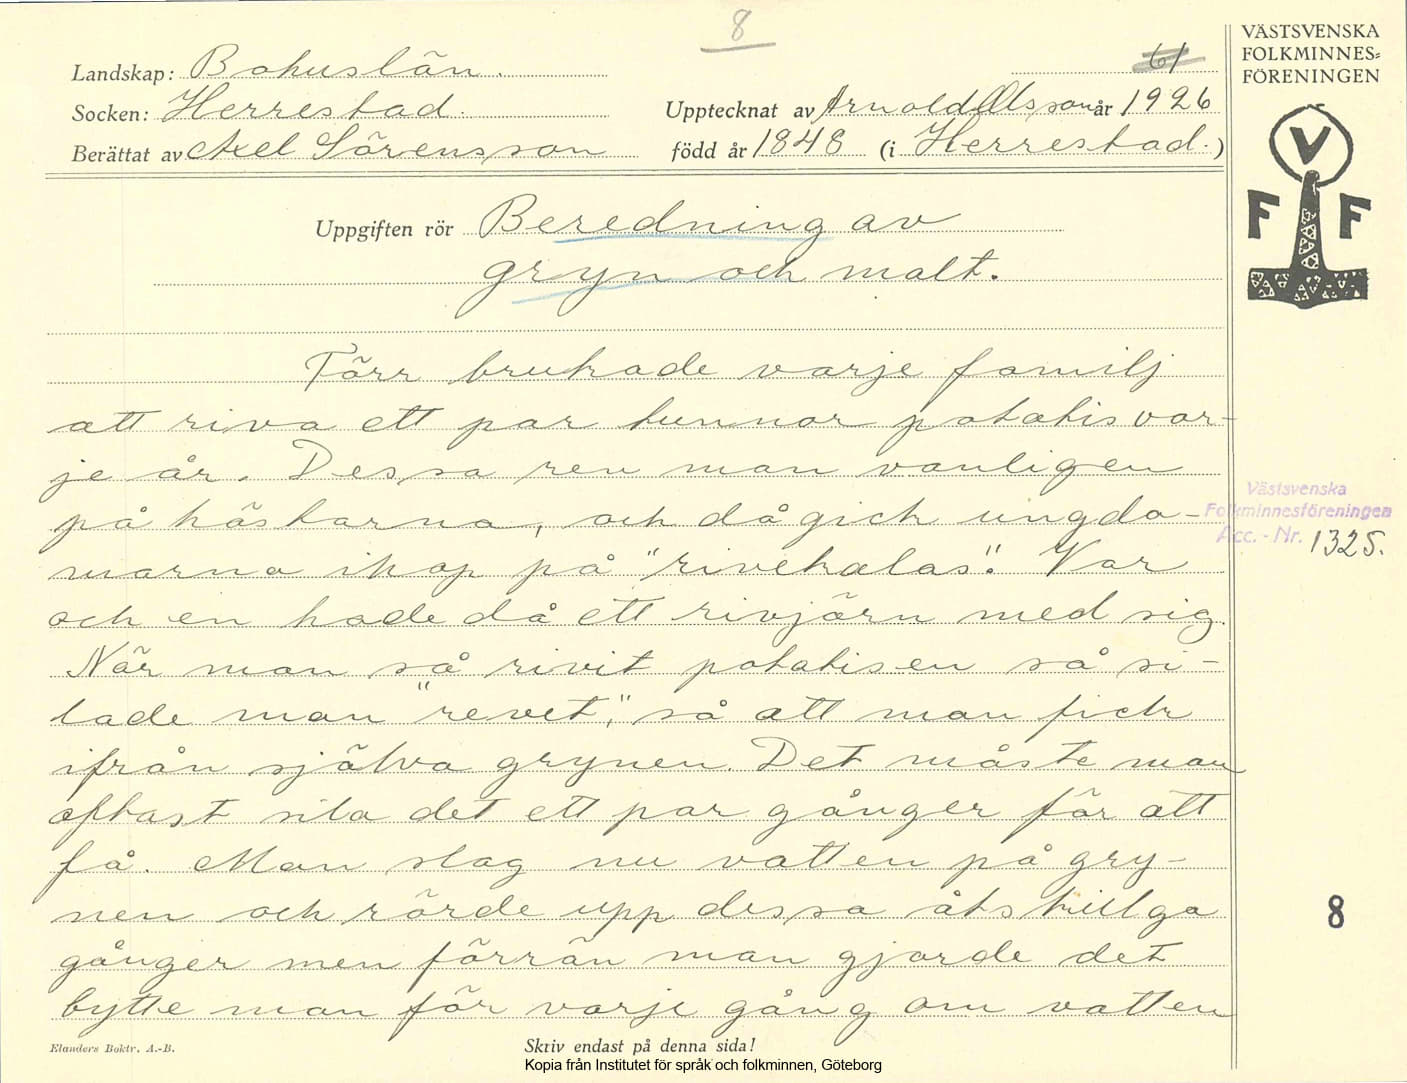 8
61
VÄSTSVENSKA
FOLKMINNES=
FÖRENINGEN
Landskap: Bohuslän.
Socken: Herrestad. Upptecknat av Arnold Olsson år 1926
Berättat av Axel Sörensson född år 1848 (i Herrestad.)
V
F F
Uppgiften rör Beredning av
gryn och malt.
Förr brukade varje familj
att riva ett par tunnor potatis var-
je år. Dessa rev man vanligen
på höstarna, och då gick ungdo-
marna ihop på "rivekalas". Var
och en hade då ett rivjärn med sig.
När man så rivit potatisen så si-
lade man "revet," så att man fick
ifrån själva grynen. Det måste man
oftast sila det ett par gånger för att
få. Man slog nu vatten på gry-
nen och rörde upp dessa åtskilliga
gånger men förrän man gjorde det
bytte man för varje gång om vatten
Västsvenska
Folkminnesföreningen
Acc.-Nr. 1325.
8
Elanders Boktr. A.-B.
Skriv endast på denna sida!
Kopia från Institutet för språk och folkminnen, Göteborg